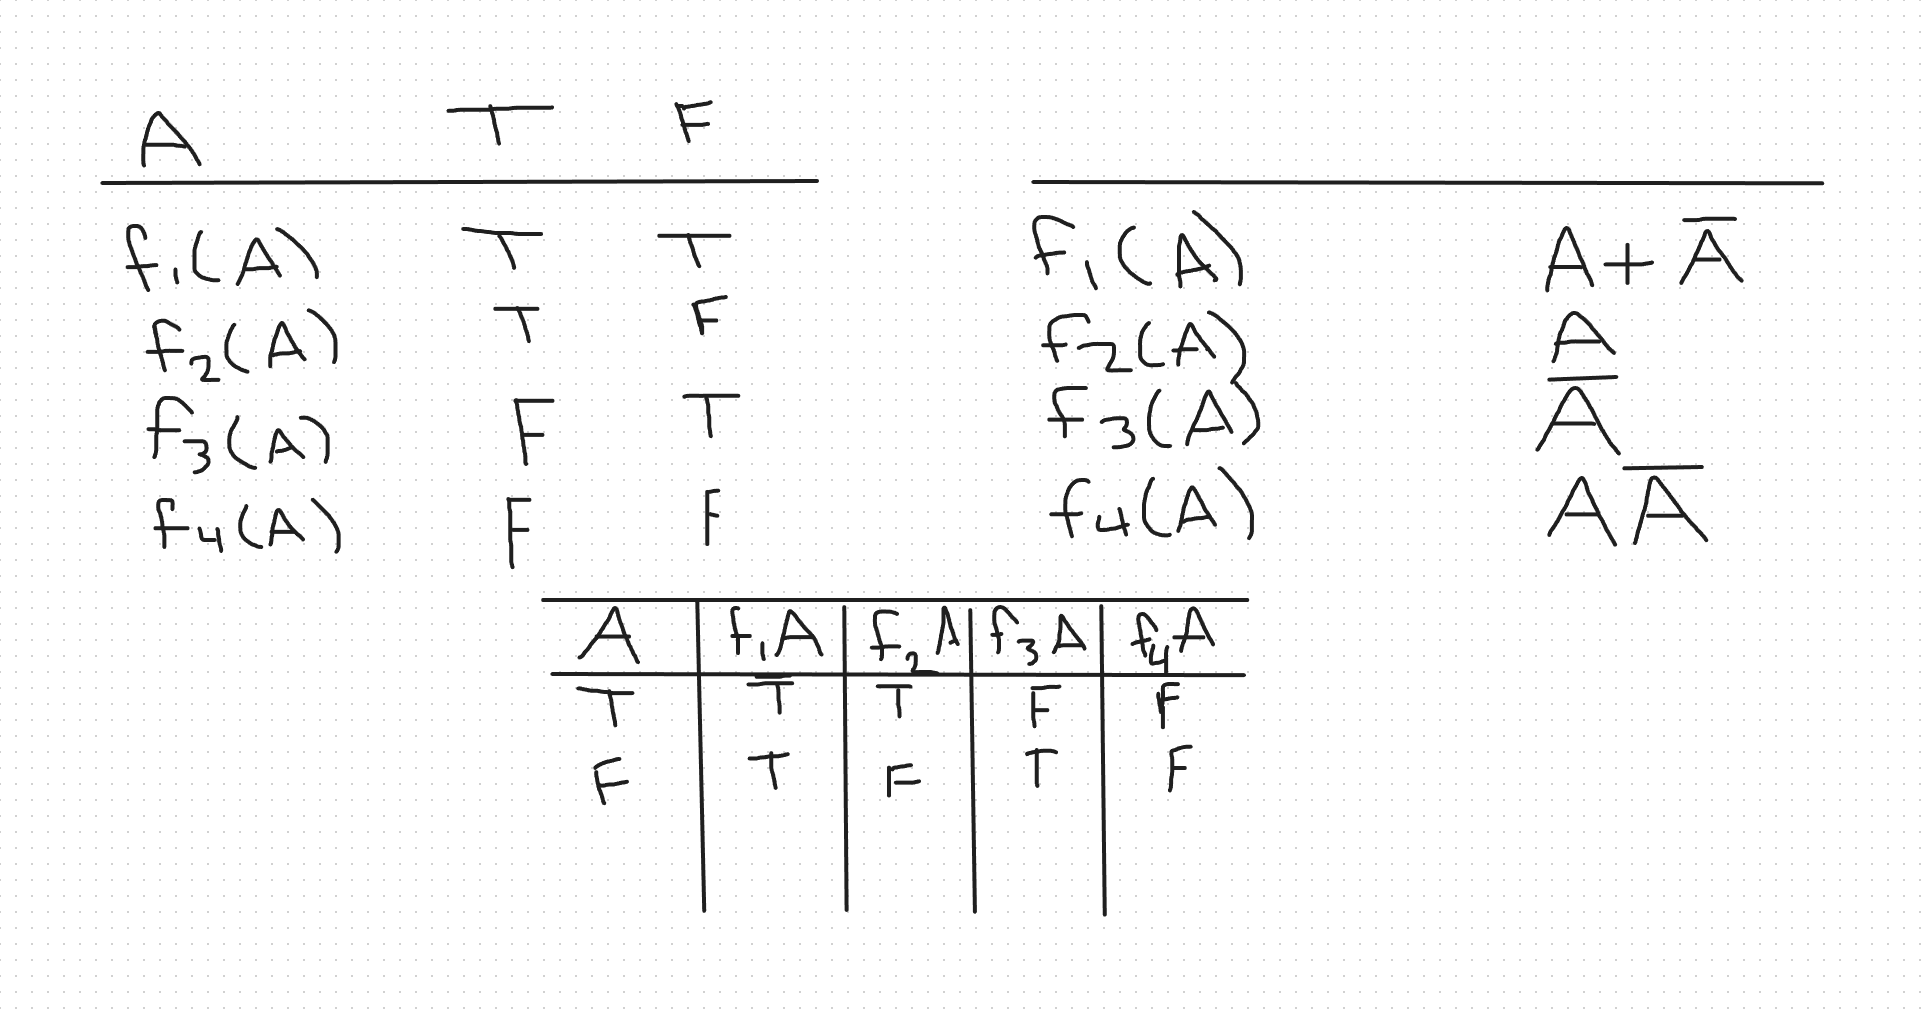 A T F
f₁(A) T T
f₂(A) T F
f₃(A) F T
f₄(A) F F
f₁(A) A + A̅
f₂(A) A
f₃(A) A̅
f₄(A) A A̅
A f₁A f₂A f₃A f₄A
T T T F F
F T F T F